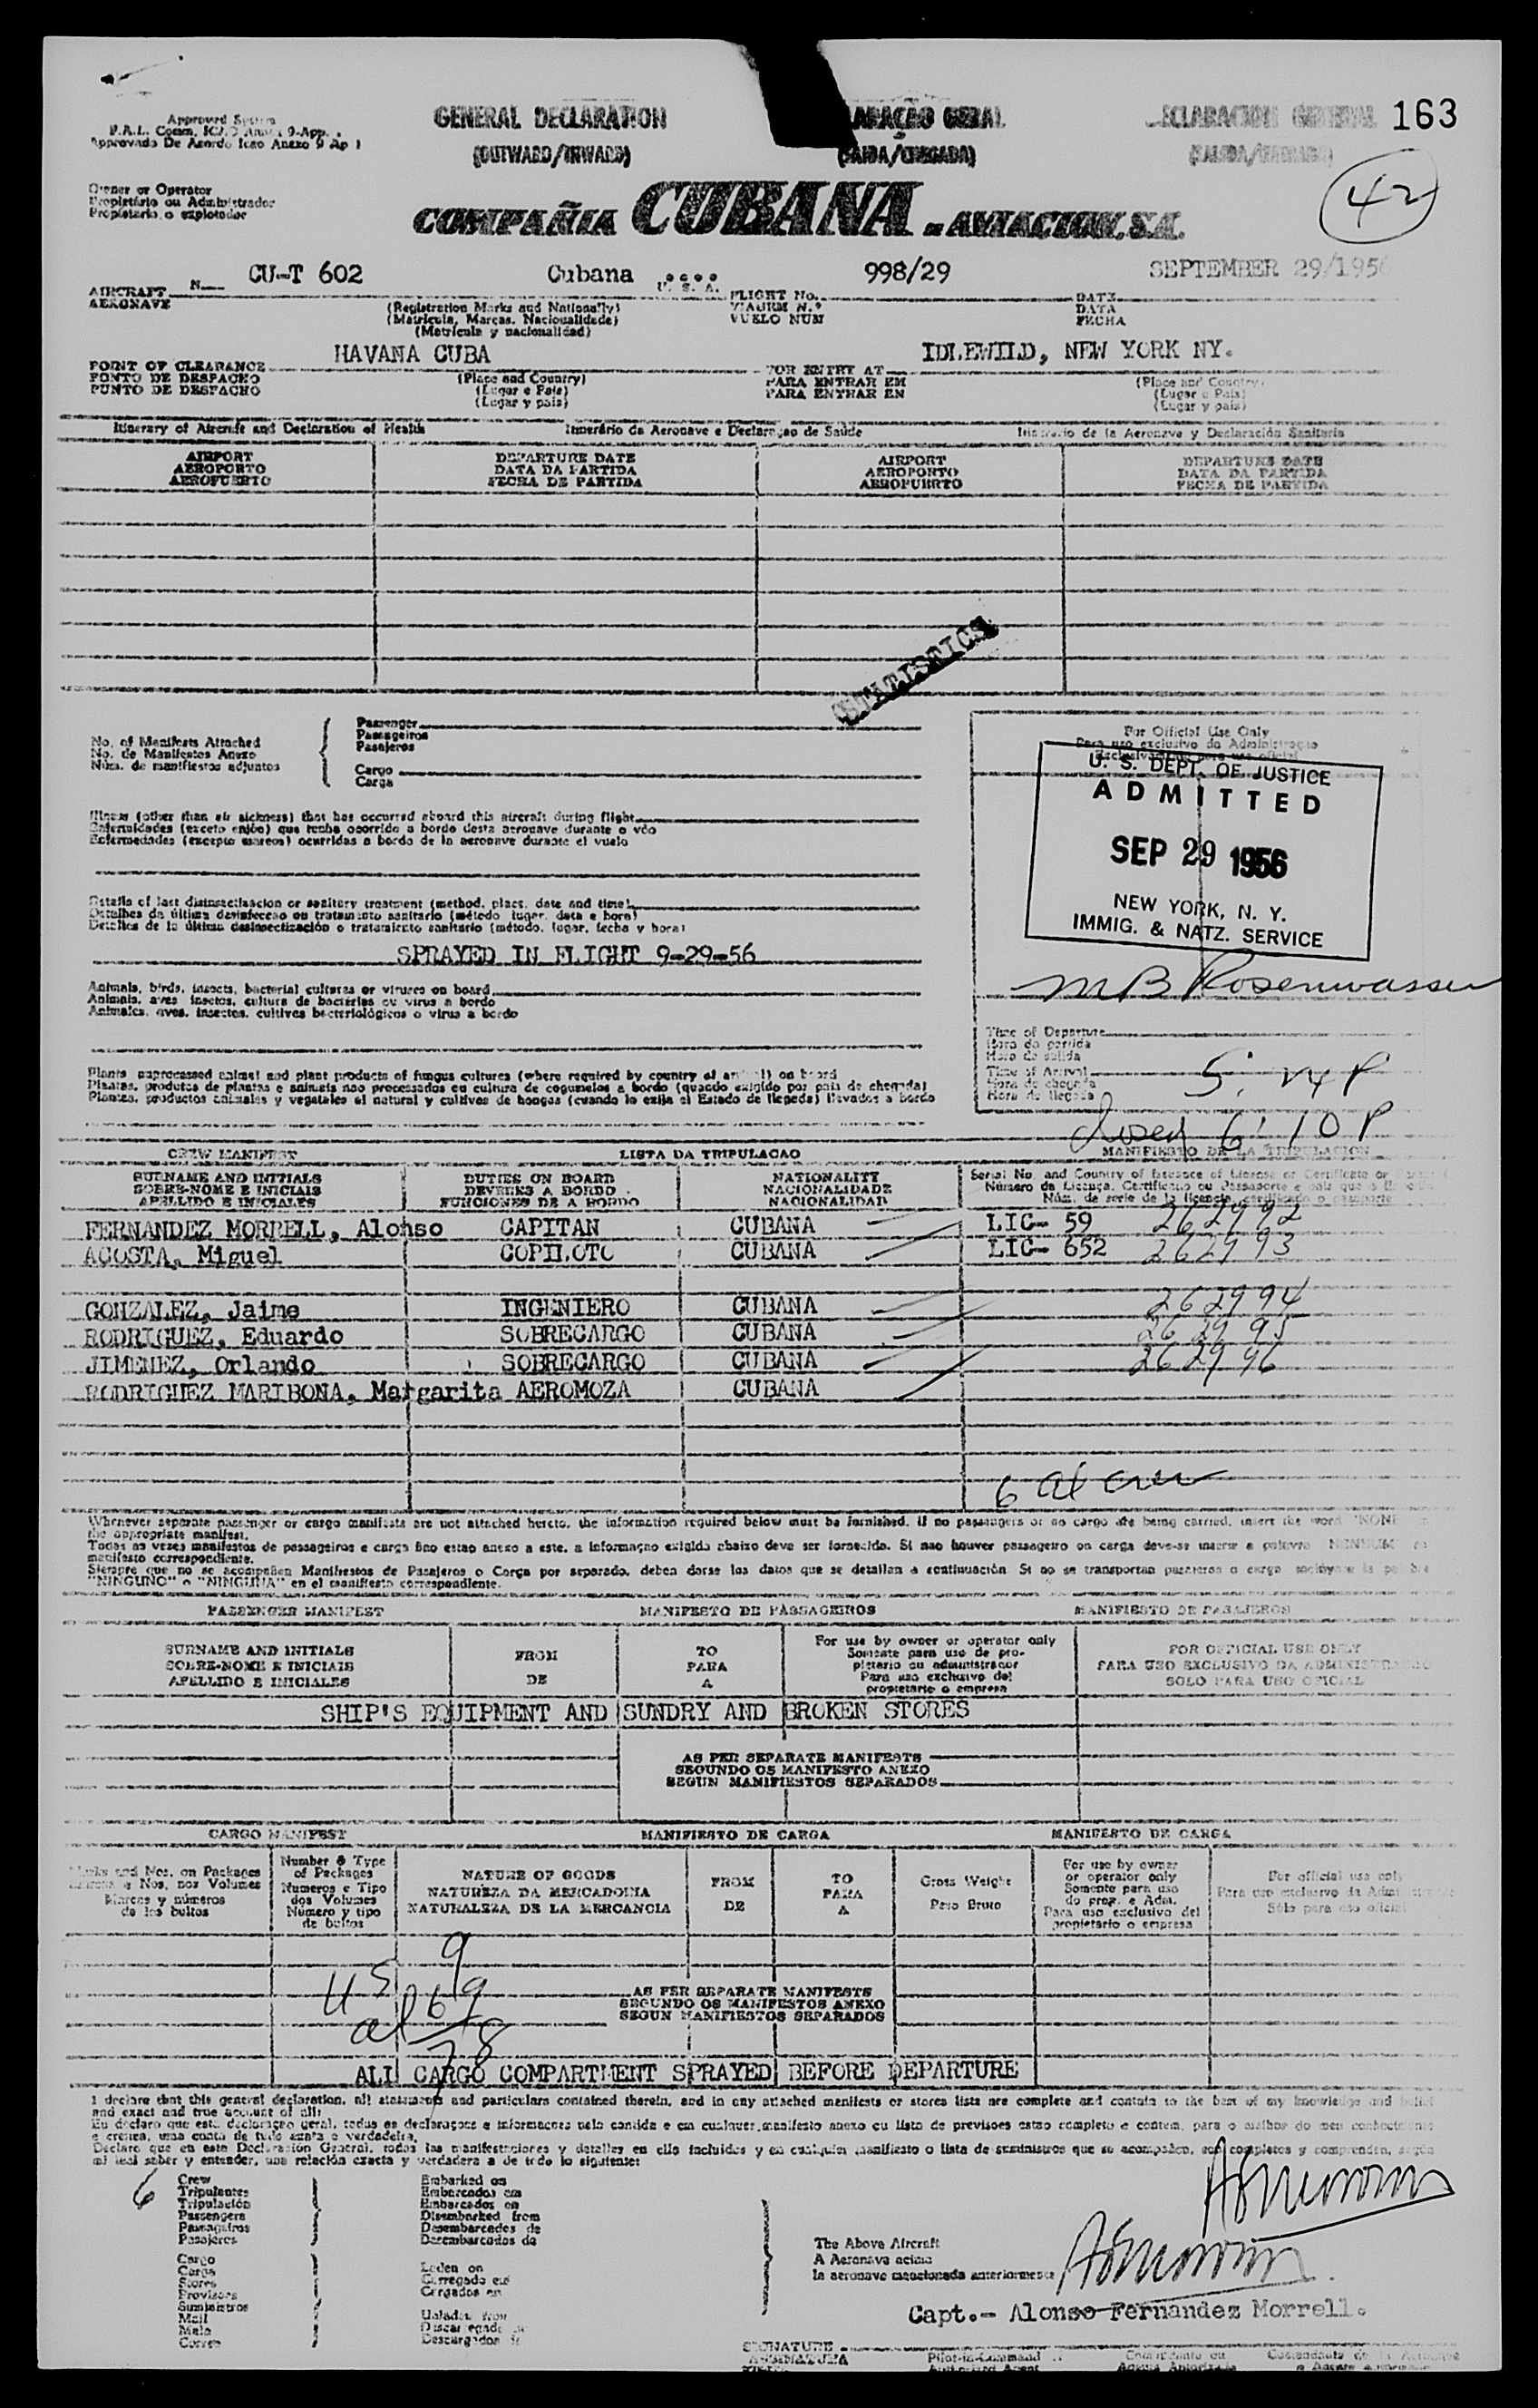 Approved System
F.A.L. Comm. ICAO Annex 9-App. 1
Approvado De Acordo Icao Anexo 9 Ap 1
GENERAL DECLARATION
(OUTWARD/INWARD)
LARAÇÃO GERAL
(SAIDA/CHEGADA)
ECLARACION GENERAL
163
42
Owner or Operator
Propietário ou Administrador
Propietario o explotador
COMPAÑIA CUBANA DE AVIACION, S.A.
AIRCRAFT N CU-T 602 Cubana U. S. A. FLIGHT No. 998/29 DATE SEPTEMBER 29/1956
AERONAVE (Registration Marks and Nationality) VIAGEM N.º DATA
(Matricula, Marcas, Nacionalidade) VUELO NUM FECHA
(Matrícula y nacionalidad)
POINT OF CLEARANCE HAVANA CUBA FOR ENTRY AT IDLEWILD, NEW YORK NY.
PONTO DE DESPACHO (Place and Country) PARA ENTRAR EM (Place and Country)
PUNTO DE DESPACHO (Lugar e Pais) PARA ENTRAR EN (Lugar e Pais)
(Lugar y país) (Lugar y país)
Itinerary of Aircraft and Declaration of Health Itinerário da Aeronave e Declaraçao de Saúde Itinerario de la Aeronave y Declaración Sanitaria
AIRPORT DEPARTURE DATE AIRPORT DEPARTURE DATE
AEROPORTO DATA DA PARTIDA AEROPORTO DATA DA PARTIDA
AEROPUERTO FECHA DE PARTIDA AEROPUERTO FECHA DE PARTIDA
STATISTICS
No. of Manifests Attached
No. de Manifestos Anexo
Núm. de manifiestos adjuntos
Passenger
Passageiros
Pasajeros
Cargo
Carga
For Official Use Only
Para uso exclusivo da Administraçao
Exclusivamente para uso oficial
U. S. DEPT. OF JUSTICE
ADMITTED
SEP 29 1956
NEW YORK, N. Y.
IMMIG. & NATZ. SERVICE
M B Rosenwasser
Illness (other than air sickness) that has occurred aboard this aircraft during flight
Enfermidades (exceto enjôo) que tenha ocorrido a bordo desta aeronave durante o vôo
Enfermedades (excepto mareos) ocurridas a bordo de la aeronave durante el vuelo
Details of last disinsectisacion or sanitary treatment (method, place, date and time)
Detalhes da última desinfeccao ou tratamento sanitario (método, lugar, data e hora)
Detalles de la última desinsectización o tratamiento sanitario (método, lugar, fecha y hora)
SPRAYED IN FLIGHT 9-29-56
Animals, birds, insects, bacterial cultures or viruses on board
Animais, aves insetos, cultura de bactérias ou virus a bordo
Animales, aves, insectos, cultivos bacteriológicos o virus a bordo
Time of Departure
Hora da partida
Hora de salida
Time of Arrival 5:24 P
Hora de chegada
Hora de llegada
closed 6:10 P
Plants unprocessed animal and plant products of fungus cultures (where required by country of arrival) on board
Plantas, produtos de plantas e animais nao processados ou cultura de cogumelos a bordo (quando exigido por pais de chegada)
Plantas, productos animales y vegetales al natural y cultivos de hongos (cuando lo exija el Estado de llegada) llevados a bordo
CREW MANIFEST LISTA DA TRIPULACAO MANIFIESTO DE LA TRIPULACION
SURNAME AND INITIALS DUTIES ON BOARD NATIONALITY
SOBRE-NOME E INICIAIS DEVERES A BORDO NACIONALIDADE
APELLIDO E INICIALES FUNCIONES DE A BORDO NACIONALIDAD
Serial No. and Country of Issuance of License or Certificate or
Número da Licença, Certificado ou Passaporte e pais que
Núm. de serie de la licencia, certificado o pasaporte
FERNANDEZ MORRELL, Alonso CAPITAN CUBANA LIC- 59 262992
ACOSTA, Miguel COPILOTO CUBANA LIC- 652 262993
GONZALEZ, Jaime INGENIERO CUBANA 262994
RODRIGUEZ, Eduardo SOBRECARGO CUBANA 262995
JIMENEZ, Orlando SOBRECARGO CUBANA 262996
RODRIGUEZ MARIBONA, Margarita AEROMOZA CUBANA
6 al crew
Whenever separate passenger or cargo manifests are not attached hereto, the information required below must be furnished. If no passengers or no cargo are being carried, insert the word "NONE"
the appropriate manifest.
Todas as vezes manifestos de passageiros e carga nao estao anexo a este, a informaçao exigida abaixo deve ser fornecida. Si nao houver passageiro on carga deve-se inserir a palavra NENHUM
manifesto correspondiente.
Siempre que no se acompañen Manifiestos de Pasajeros o Carga por separado, deben darse los datos que se detallan a continuación. Si no se transportan pasajeros o carga
"NINGUNO" o "NINGUNA" en el manifiesto correspondiente.
PASSENGER MANIFEST MANIFESTO DE PASSAGEIROS MANIFIESTO DE PASAJEROS
SURNAME AND INITIALS FROM TO For use by owner or operator only FOR OFFICIAL USE ONLY
SOBRE-NOME E INICIAIS DE PARA Somente para uso de pro- PARA USO EXCLUSIVO DA ADMINISTRAÇAO
APELLIDO E INICIALES A pietario ou administrador SOLO PARA USO OFICIAL
Para uso exclusivo del
propietario o empresa
SHIP'S EQUIPMENT AND SUNDRY AND BROKEN STORES
AS PER SEPARATE MANIFESTS
SEGUNDO OS MANIFESTO ANEXO
SEGUN MANIFIESTOS SEPARADOS
CARGO MANIFEST MANIFIESTO DE CARGA MANIFESTO DE CARGA
Marks and Nos. on Packages
Marcas e Nos. nos Volumes
Marcas y números
de los bultos
Number & Type
of Packages
Numeros e Tipo
dos Volumes
Número y tipo
de bultos
NATURE OF GOODS
NATUREZA DA MERCADORIA
NATURALEZA DE LA MERCANCIA
FROM
DE
TO
PARA
A
Gross Weight
Peso Bruto
For use by owner
or operator only
Somente para uso
do prop. e Adm.
Para uso exclusivo del
propietario o empresa
For official use only
Para uso exclusivo da
Sólo para uso oficial
US 9
al 69
78
AS PER SEPARATE MANIFESTS
SEGUNDO OS MANIFESTOS ANEXO
SEGUN MANIFIESTOS SEPARADOS
ALL CARGO COMPARTMENT SPRAYED BEFORE DEPARTURE
I declare that this general declaration, all statements and particulars contained therein, and in any attached manifests or stores lists are complete and contain to the best of my knowledge and belief
and exact and true account of all:
Eu declaro que esta declaraçao geral, todas as declaraçoes e informacoes nela contida e em cualquer manifesto anexo ou lista de previsoes estao completo e contem, para o melhor do meu conhecimento
e crenca, uma conta de tudo exata e verdadeira.
Declaro que en esta Declaración General, todas las manifestaciones y detalles en ella incluidos y en cualquier manifiesto o lista de suministros que se acompañen, son completos y comprenden, según
mi leal saber y entender, una relación exacta y verdadera a de todo lo siguiente:
6
Crew
Tripulantes
Tripulación
Passengers
Passageiros
Pasajeros
Cargo
Carga
Stores
Provisors
Suministros
Mail
Mala
Correo
Embarked on
Embarcados em
Embarcados en
Disembarked from
Desembarcados de
Desembarcados de
Laden on
Carregado em
Cargados en
Unladen from
The Above Aircraft
A Aeronave acima
la aeronave mencionada anteriormente
Capt.- Alonso Fernandez Morrell.
SIGNATURE
ASSINATURA
Pilot-in-Command
Authorized Agent